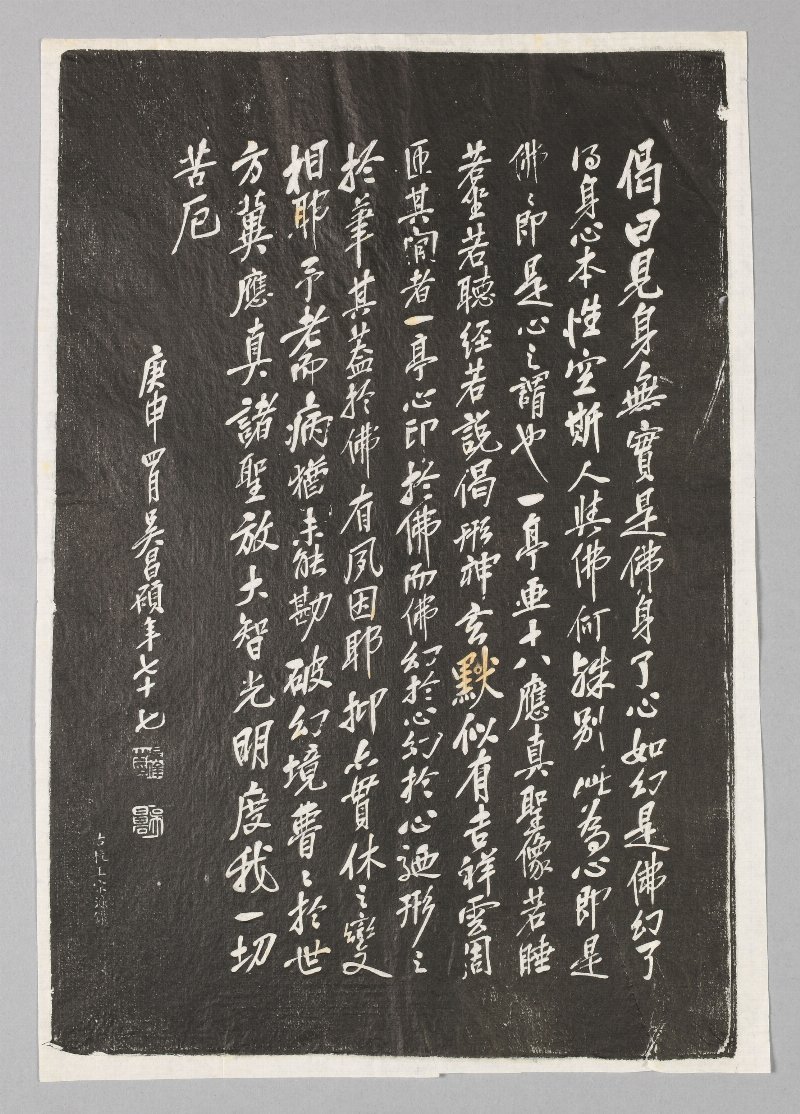 偈曰見身無實是佛身了心如幻是佛幻了
得身心本性空斯人與佛何殊別此為心即是
佛佛即是心之謂也一亭畫十八應真聖像若睡
若坐若聽經若說偈形神玄默似有吉祥雲周
匝其間者一亭心印於佛而佛幻於心幻於心迺形之
於筆其蓋於佛有夙因耶抑亦貫休之變
相耶予老而病猶未能勘破幻境瞢瞢於世
方冀應真諸聖放大智光明度我一切
苦厄
庚申四月吳昌碩年七十七